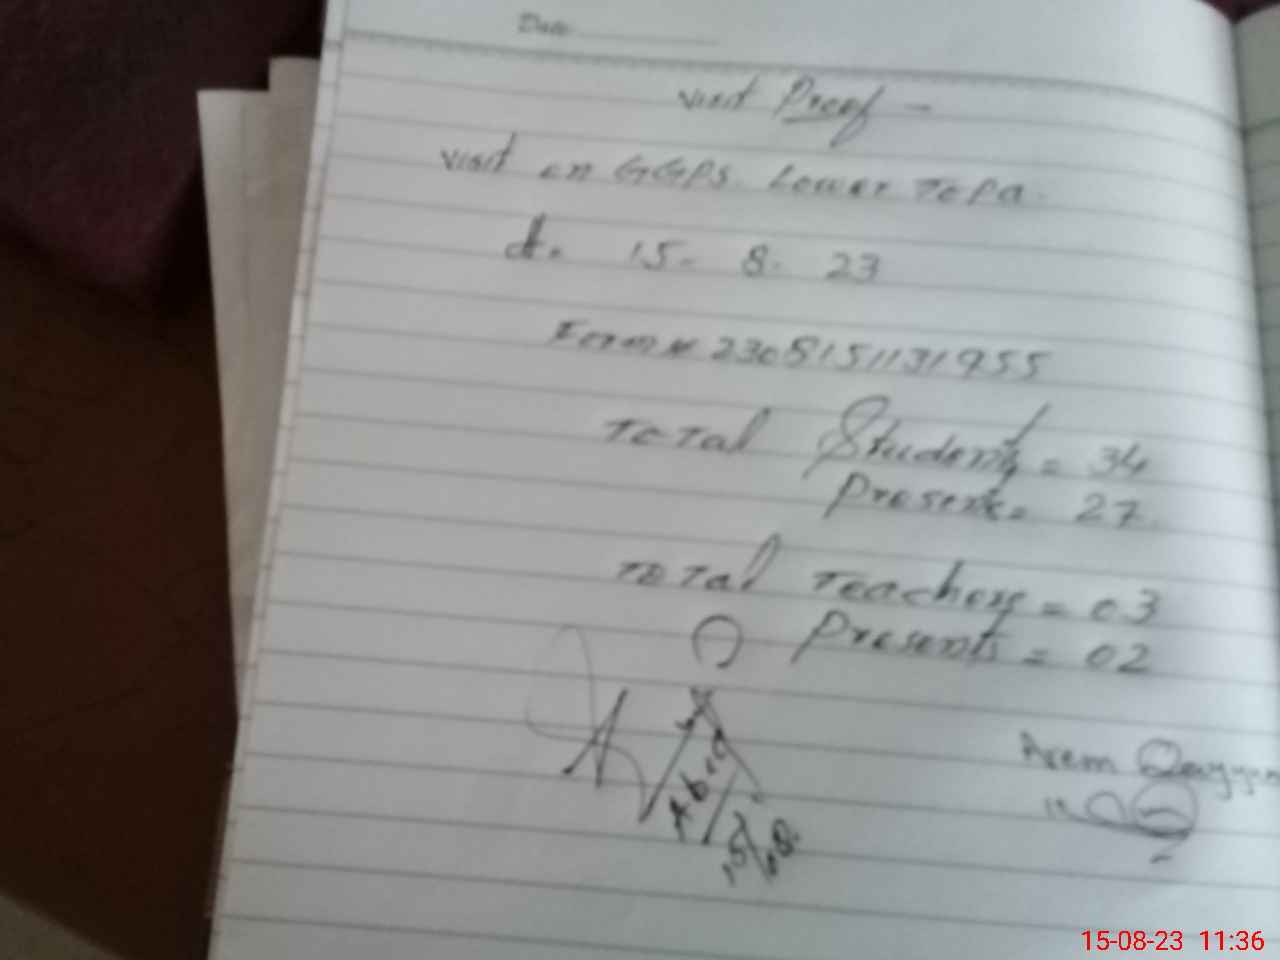 Date
Visit Proof -
Visit on GGPS. Lower Topa.
dt. 15- 8- 23
Form # 2308151131955
Total Students = 34
Present = 27
Total Teachers = 03
Presents = 02
Abid
15/08
15-08-23 11:36